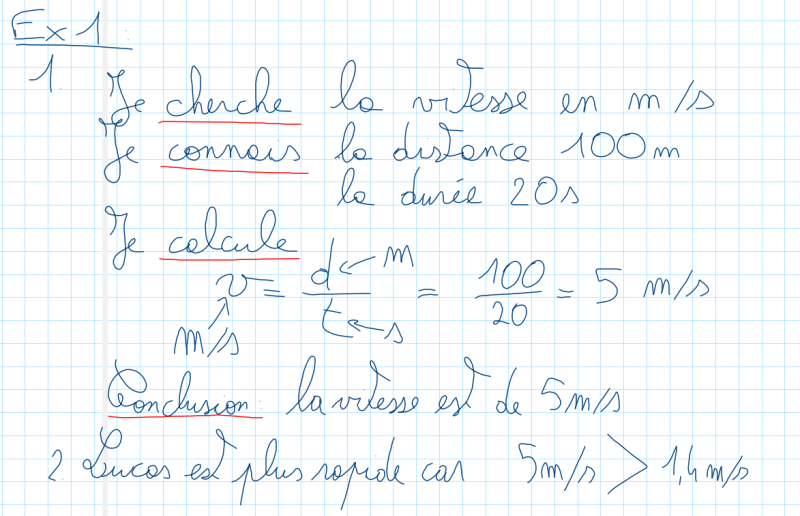 Ex 1 :
1. Je cherche la vitesse en m/s
Je connais la distance 100m
la durée 20s
Je calcule
v = d ← m / t ← s = 100 / 20 = 5 m/s
m/s
Conclusion : la vitesse est de 5m/s
2. Lucas est plus rapide car 5m/s > 1,4 m/s